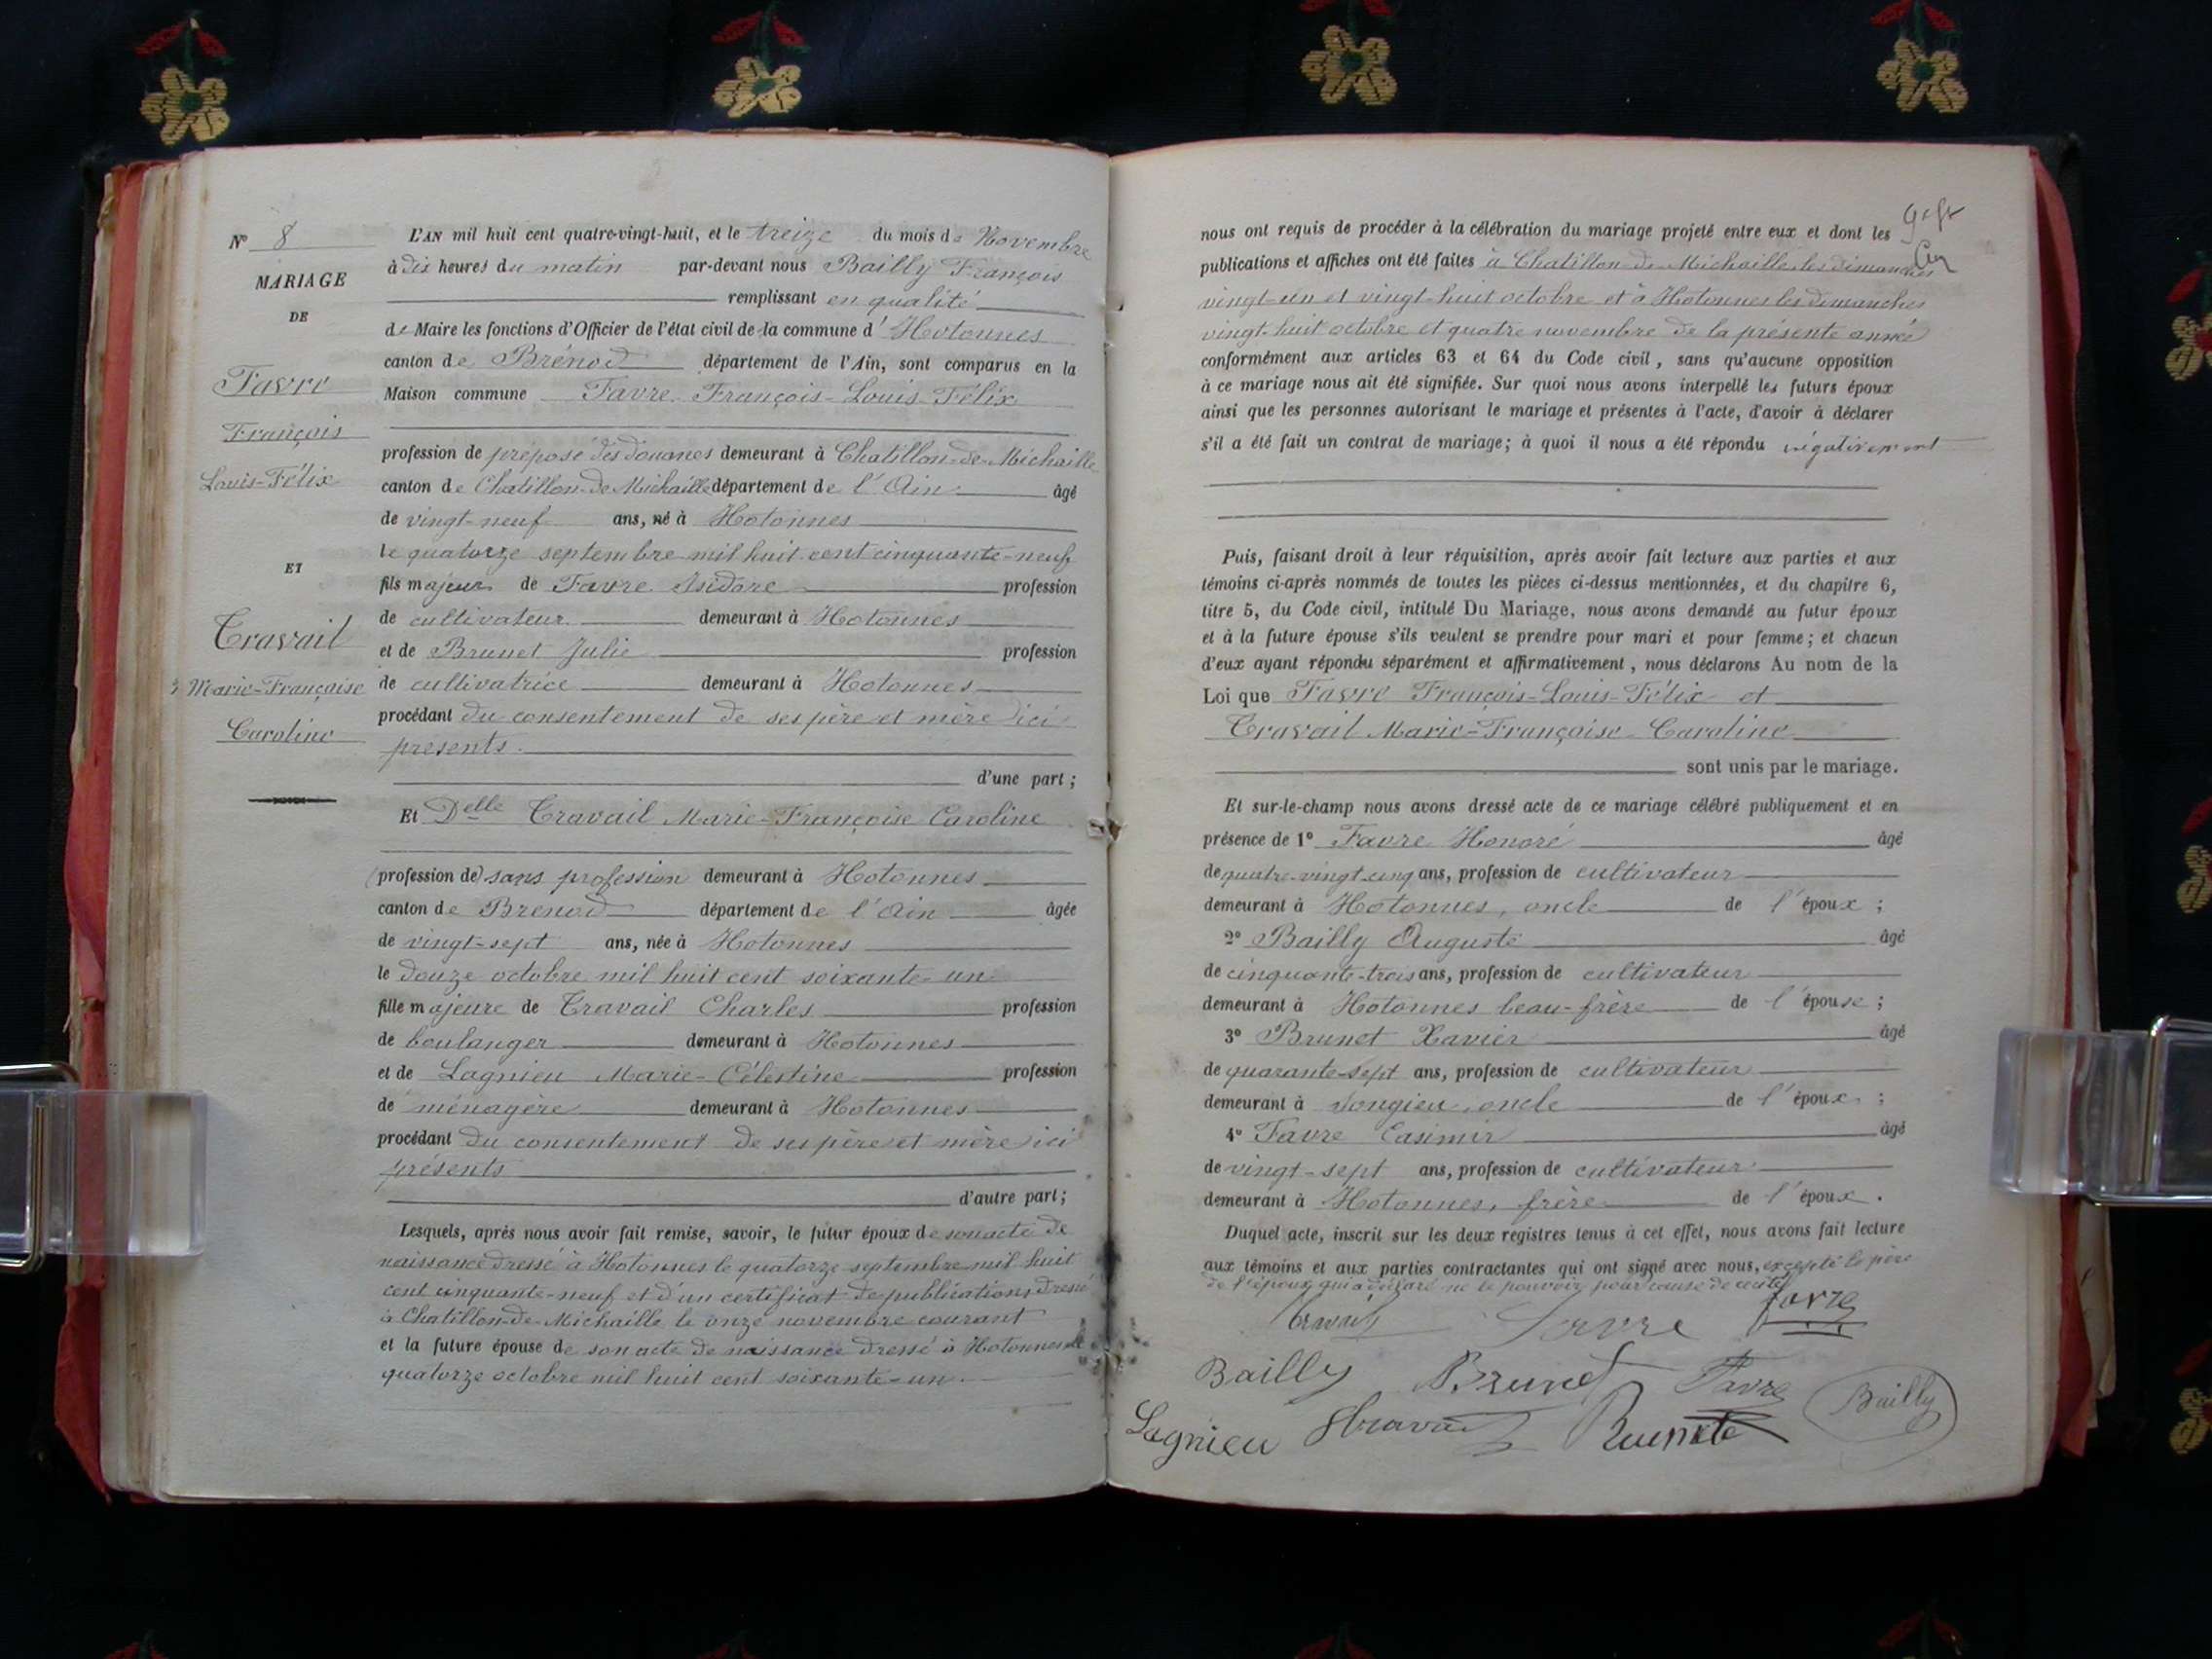 N° 8
MARIAGE
DE
Favre
François
Louis-Félix
ET
Travail
Marie-Françoise
Caroline
L'AN mil huit cent quatre-vingt-huit, et le treize du mois de Novembre
à dix heures du matin par-devant nous Bailly François
remplissant en qualité
de Maire les fonctions d'Officier de l'état civil de la commune d'Hotonnes
canton de Brénod département de l'Ain, sont comparus en la
Maison commune Favre François-Louis-Félix
profession de préposé des douanes demeurant à Chatillon-de-Michaille
canton de Chatillon-de-Michaille département de l'Ain âgé
de vingt-neuf ans, né à Hotonnes
le quatorze septembre mil huit cent cinquante-neuf
fils majeur de Favre Isidore profession
de cultivateur demeurant à Hotonnes
et de Brunet Julie profession
de cultivatrice demeurant à Hotonnes
procédant du consentement de ses père et mère ici
présents.
d'une part ;
Et Delle Travail Marie-Françoise Caroline
(profession de) sans profession demeurant à Hotonnes
canton de Brenod département de l'Ain âgée
de vingt-sept ans, née à Hotonnes
le douze octobre mil huit cent soixante-un
fille majeure de Travail Charles profession
de boulanger demeurant à Hotonnes
et de Lagnieu Marie-Célestine profession
de ménagère demeurant à Hotonnes
procédant du consentement de ses père et mère ici
présents
d'autre part ;
Lesquels, après nous avoir fait remise, savoir, le futur époux de son acte de
naissance dressé à Hotonnes le quatorze septembre mil huit
cent cinquante-neuf et d'un certificat de publications dressé
à Chatillon-de-Michaille le onze novembre courant
et la future épouse de son acte de naissance dressé à Hotonnes le
quatorze octobre mil huit cent soixante-un.
nous ont requis de procéder à la célébration du mariage projeté entre eux et dont les
publications et affiches ont été faites à Chatillon-de-Michaille les dimanches
vingt-un et vingt-huit octobre et à Hotonnes les dimanches
vingt-huit octobre et quatre novembre de la présente année
conformément aux articles 63 et 64 du Code civil, sans qu'aucune opposition
à ce mariage nous ait été signifiée. Sur quoi nous avons interpellé les futurs époux
ainsi que les personnes autorisant le mariage et présentes à l'acte, d'avoir à déclarer
s'il a été fait un contrat de mariage ; à quoi il nous a été répondu négativement
Puis, faisant droit à leur réquisition, après avoir fait lecture aux parties et aux
témoins ci-après nommés de toutes les pièces ci-dessus mentionnées, et du chapitre 6,
titre 5, du Code civil, intitulé Du Mariage, nous avons demandé au futur époux
et à la future épouse s'ils veulent se prendre pour mari et pour femme ; et chacun
d'eux ayant répondu séparément et affirmativement, nous déclarons Au nom de la
Loi que Favre François-Louis-Félix et
Travail Marie-Françoise-Caroline
sont unis par le mariage.
Et sur-le-champ nous avons dressé acte de ce mariage célébré publiquement et en
présence de 1° Favre Honoré âgé
de quatre-vingt-cinq ans, profession de cultivateur
demeurant à Hotonnes, oncle de l'époux ;
2° Bailly Auguste âgé
de cinquante-trois ans, profession de cultivateur
demeurant à Hotonnes beau-frère de l'épouse ;
3° Brunet Xavier âgé
de quarante-sept ans, profession de cultivateur
demeurant à Songieu, oncle de l'époux ;
4° Favre Casimir âgé
de vingt-sept ans, profession de cultivateur
demeurant à Hotonnes, frère de l'époux.
Duquel acte, inscrit sur les deux registres tenus à cet effet, nous avons fait lecture
aux témoins et aux parties contractantes qui ont signé avec nous, excepté le père
de l'époux qui a déclaré ne le pouvoir pour cause de cécité
Travail Favre Favre
Bailly Brunet Favre Bailly
Lagnieu Travail